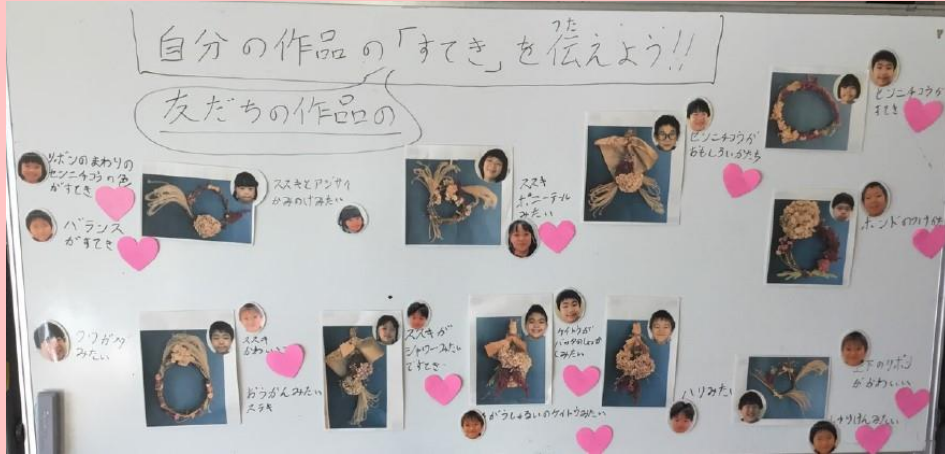 自分の作品の「すてき」を伝えよう!!
つた
友だちの作品の
リボンのまわりの
センニチコウの色
がすてき
バランス
がすてき
ススキとアジサイ
かみのけみたい
ススキ
ポニーテール
みたい
センニチコウが
おもしろいかたち
センニチコウが
すてき
ボンドの
クワガタ
みたい
ススキ
かわいい
おうかんみたい
ステキ
ススキが
シャワーみたい
ですてき
ケイトウが
みたい
がうしゅるいのケイトウみたい
ハリみたい
上下のリボン
がかわいい
しゅりけんみたい